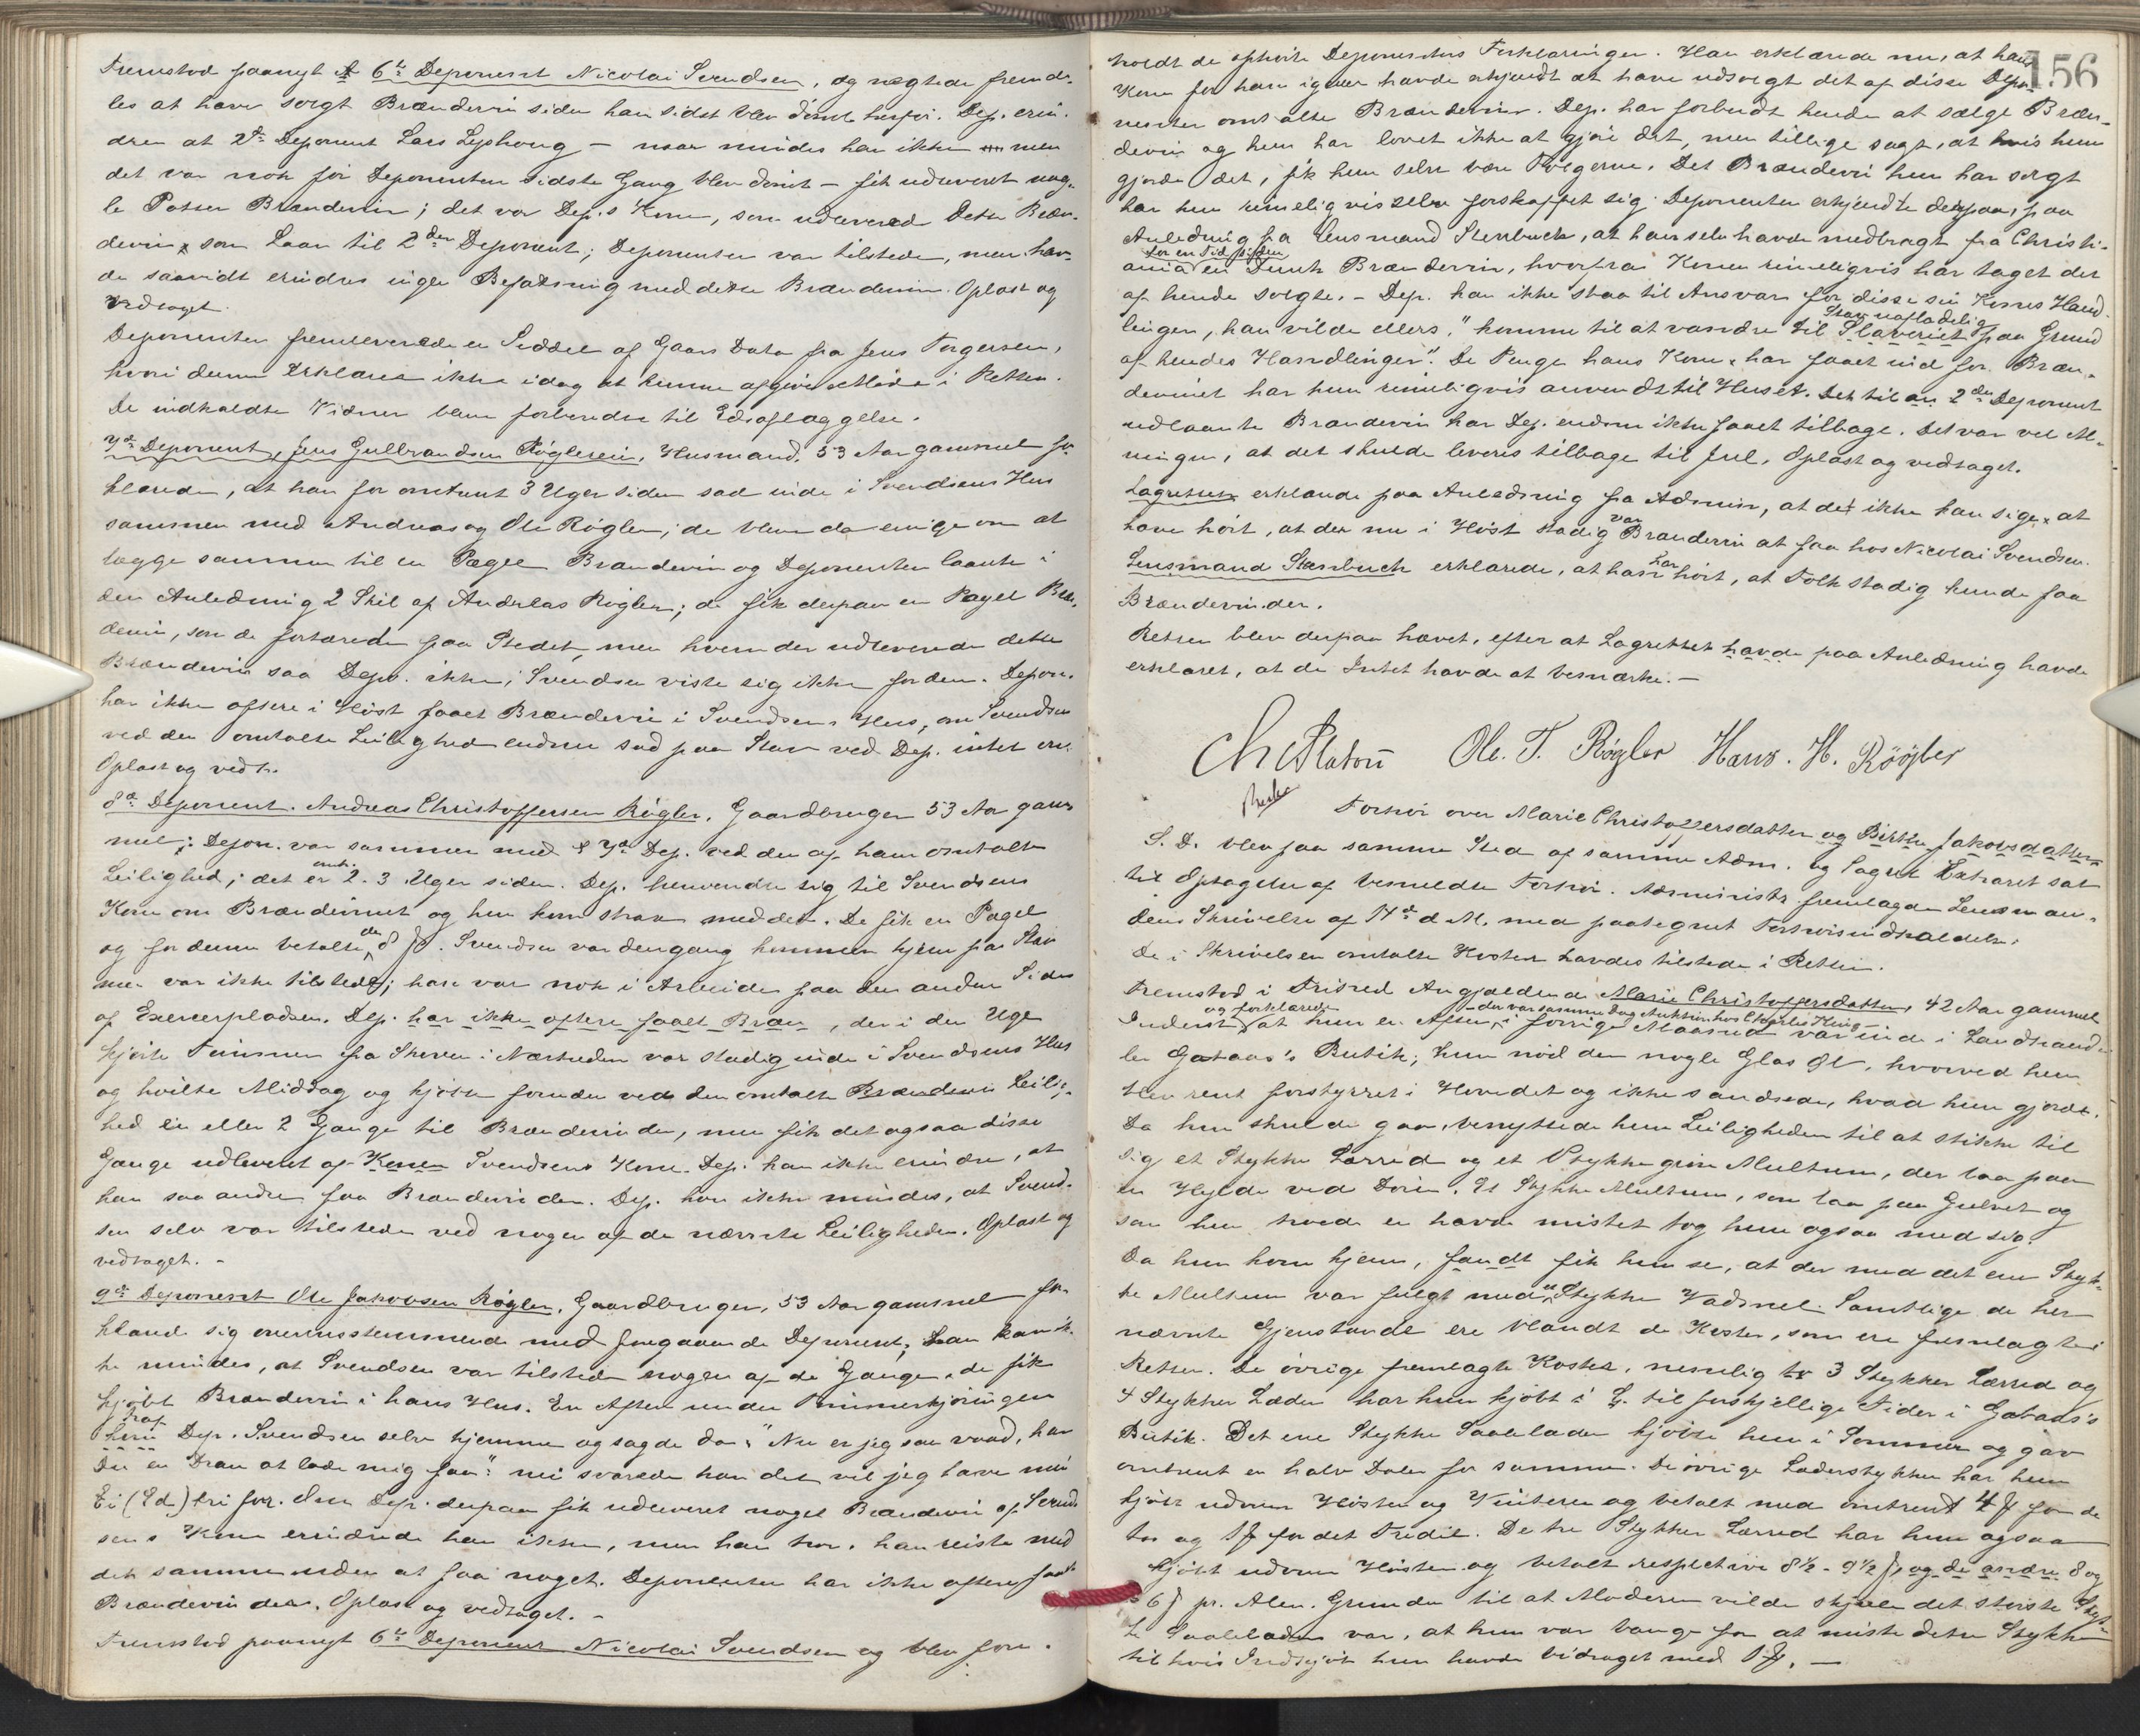 Fremstod paanyt 6te Deponent Nicolai Svendsen, og nægtede fremde-
les at have solgt Brændeviin siden han sidst blev dømt herfor. Dep. erin-
drer at 2den Deponent Lars Lyshoug – naar mindes han ikke men
det var nok før Deponenten sidste Gang blev dømt – fik udleveret nog-
le Potter Brændeviin; det var Dep.s Kone, som udleverede dette Bræn-
deviin som Laan til 2den Deponent; Deponenten var tilstede, men hav-
de saavidt erindres ingen Befatning med dette Brændeviin. Oplæst og
vedtaget.
Deponenten fremleverede en Seddel af Gaars Dato fra Jens Torgersen,
hvori denne erklærer ikke idag at kunne afgive Møde i Retten.
De indkaldte Vidner bleve forberedte til Edsaflæggelse.
7de Deponent, Jens Gulbrandsen Røgleeie, Husmand, 53 Aar gammel for-
klarede, at han for omtrent 3 Uger siden sad inde i Svendsens Hus
sammen med Andreas og Ole Røgler; de bleve da enige om at
lægge sammen til en Pægel Brændeviin og Deponenten laante i
den Anledning 2 Skil af Andreas Røgler; de fik derpaa en Pægel Bræn-
deviin, som de fortærede paa Stedet, men hvem der udleverede dette
Brændeviin saa Depo. ikke; Svendsen viste sig ikke for dem. Depon.
har ikke oftere i Høst faaet Brændeviin i Svendsens Hus, om Svendsen
ved den omtalte Leilighed endnu sad paa Slav. ved Dep. intet om.
Oplæst og vedt.
8de Deponent. Andreas Christoffersen Røgler, Gaardbruger 53 Aar gam-
mel; Depon. var sammen med 7de Dep. ved den af ham omtalte
Leilighed; det er omtr. 2-3 Uger siden. Dep. henvendte sig til Svendsens
Kone om Brændevinet og hun kom strax med det. De fik en Pægel
og for denne betalte de 8 ß. Svendsen var dengang kommen hjem fra Slav
men var ikke tilstede; han var nok i Arbeide paa den anden Side
af Exercerpladsen. Dep. har ikke oftere faaet Bræn, der i den Uge
kjørte Tømmer fra Skoven i Nærheden var stadig inde i Svendsens Hus
og hvilte Middag og kjøbte foruden ved den omtalte Brændeviin Leilig-
hed en eller 2 Gange til Brændeviin der, men fik det ogsaa disse
Gange udleveret af Konen Svendsens Kone. Dep. kan ikke erindre, at
han saa andre faa Brændeviin der. Dep. kan ikke mindes, at Svend-
sen selv var tilstede ved nogen af de nævnte Leiligheder. Oplæst og
vedtaget. -
9de Deponent Ole Jakobsen Røgler, Gaardbruger, 53 Aar gammel for-
klarede sig overensstemmende med foregaaende Deponent; han kan ik-
ke mindes, at Svendsen var tilstede nogen af de Gange, de fik
kjøbt Brændeviin i hans Hus. En Aften under Tømmerkjøringen
traf
Dep. Svendsen selv hjemme og sagde da: "Nu er jeg saa vaad, har
Du en Dram at lade mig faa": nei svarede han det vil jeg have min
Ei (Ed) fri for. Om Dep. derpaa fik udleveret noget Brændeviin af Svend-
sens Kone erindrede han ikke, men han tror, han reiste med
det samme uden at faa noget. Deponenten har ikke oftere faaet
Brændeviin der. Oplæst og vedtaget. -
Fremstod paanyt 6te Deponent Nicolai Svendsen og blev fore-
156
holdt de ophørte Deponenters Forklaringer. Han erklærede nu, at hans
Kone for ham igaar havde erkjendt at have udsolgt det af disse Depo-
nenter omtalte Brændeviin. Dep. har forbudt hende at sælge Bræn-
deviin og hun har lovet ikke at gjøre det, men tillige sagt, at hvis hun
gjorde det, fik hun selv være Svoger. Det Brændeviin hun har solgt
har hun rimeligvis selv forskaffet sig. Deponenten erkjendte derpaa, paa
Anledning fra Lensmand Stenbuch, at han selv havde medbragt fra Christi-
for en Tid siden
ania en Dunk Brændeviin, hvorfra Konen rimeligvis har taget det
af hende solgte. – Dep. kan ikke staa til Ansvar for disse sin Kones Hand-
lingen, han vilde ellers "komme til at vandre stadig uafladelig til Slaveriet paa Grund
af hendes Handlinger". De Penge hans Kone har faaet ind for Bræn-
devinet har hun rimeligvis anvendt til Huset. Det til 2den Deponent
udlaante Brændeviin har Dep. endnu ikke faaet tilbage. Det var vel Me-
ningen, at det skulde leveres tilbage til Jul. Oplæst og vedtaget.
Lagretten erklærede paa Anledning fra Admin, at det ikke kan siges at
have hørt, at der nu i Høst stadig var Brændeviin at faa hos Nicolai Svendsen.
Lensmand Stenbuch erklærede, at han har hørt, at Folk stadig kunde faa
Brændeviin der.
Retten blev derpaa hævet, efter at Lagrettet havde paa Anledning havde
erklæret, at de Intet havde at bemærke. –
Ch Platou Ole. T. Røgler Hans. H. Röögler
Forhør over Marie Christoffersdatter og Birthe Jakobsdatter
S. D. blev paa samme Sted af samme Adm. og Lagret Extraret sat
til Optagelse af bemeldte Forhør. Administr. fremlagde Lensman-
dens Skrivelse af 14de d. M. med paategnet Forhørsindkaldelse.
De i Skrivelsen omtalte Koster havdes tilstede i Retten.
Fremstod i Frihed Angjældende Marie Christoffersdatter, 42 Aar gammel
og forklarede – der var samme Dag Auktion hos Charles Hering –
Inderst at hun en Aften i forrige Maaned var inde i Landhand-
ler Gataas's Butik; hun nød der nogle Glas Øl, hvorved hun
blev rent forstyrret i Hovedet og ikke sandsede, hvad hun gjorde.
Da hun skulde gaa, benyttede hun Leiligheden til at stikke til
sig et Stykke Lærred og et Stykke grøn Multum, der laa paa
en Hylde ved Døren. Et Stykke Multum, som laa paa Gulvet og
som hun troede en havde mistet tog hun ogsaa med sig.
Da hun kom hjem, fandt fik hun se, at der med det ene Styk-
ke Multum var fulgt med et Stykke Vadmel. Samtlige de her
nævnte Gjenstande ere blandt de Koster, som ere fremlagte i
Retten. De øvrige fremlagte Koster, nemlig 3 Stykker Lærred og
4 Stykker Læder har hun kjøbt til forskjellige Tider i Gataas's
Butik. Det ene Stykke Saalelæder kjøbte hun i Sommer og gav
omtrent en halv Daler for samme. De øvrige Læderstykker har hun
kjøbt udover Høsten og Vinteren og betalt med omtrent 4 ß for de
to og 1 ß for det Tredie. De tre Stykker Lærred har hun ogsaa
kjøbt udover Høsten og betalt respektive 8½ - 9½ ß, og de andre 8 og
6 ß pr. Alen. Grunden til at Moderen vilde skjule det største Styk-
ke Saalelæder var, at hun var bange for at miste dette Stykke
til hvis Indkjøb hun havde bidraget med 1 ß. –